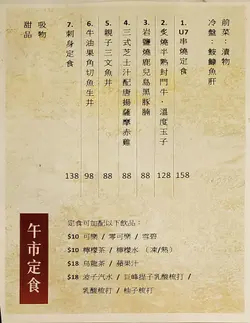 前菜：漬物
冷盤：鮟鱇魚肝
1. U7串燒定食 158
2. 炙燒半熟封門牛．溫度玉子 128
3. 岩鹽燒鹿兒島黑豚腩 88
4. 三式芝士汁配唐揚薩摩赤雞 88
5. 親子三文魚丼 88
6. 牛油果角切魚生丼 98
7. 刺身定食 138
吸物
甜品
午市定食
定食可加配以下飲品：
$10 可樂 / 零可樂 / 雪碧
$10 檸檬茶 / 檸檬水 （凍/熱）
$18 烏龍茶 / 蘋果汁
$18 波子汽水 / 巨峰提子乳酸梳打 /
乳酸梳打 / 柚子梳打